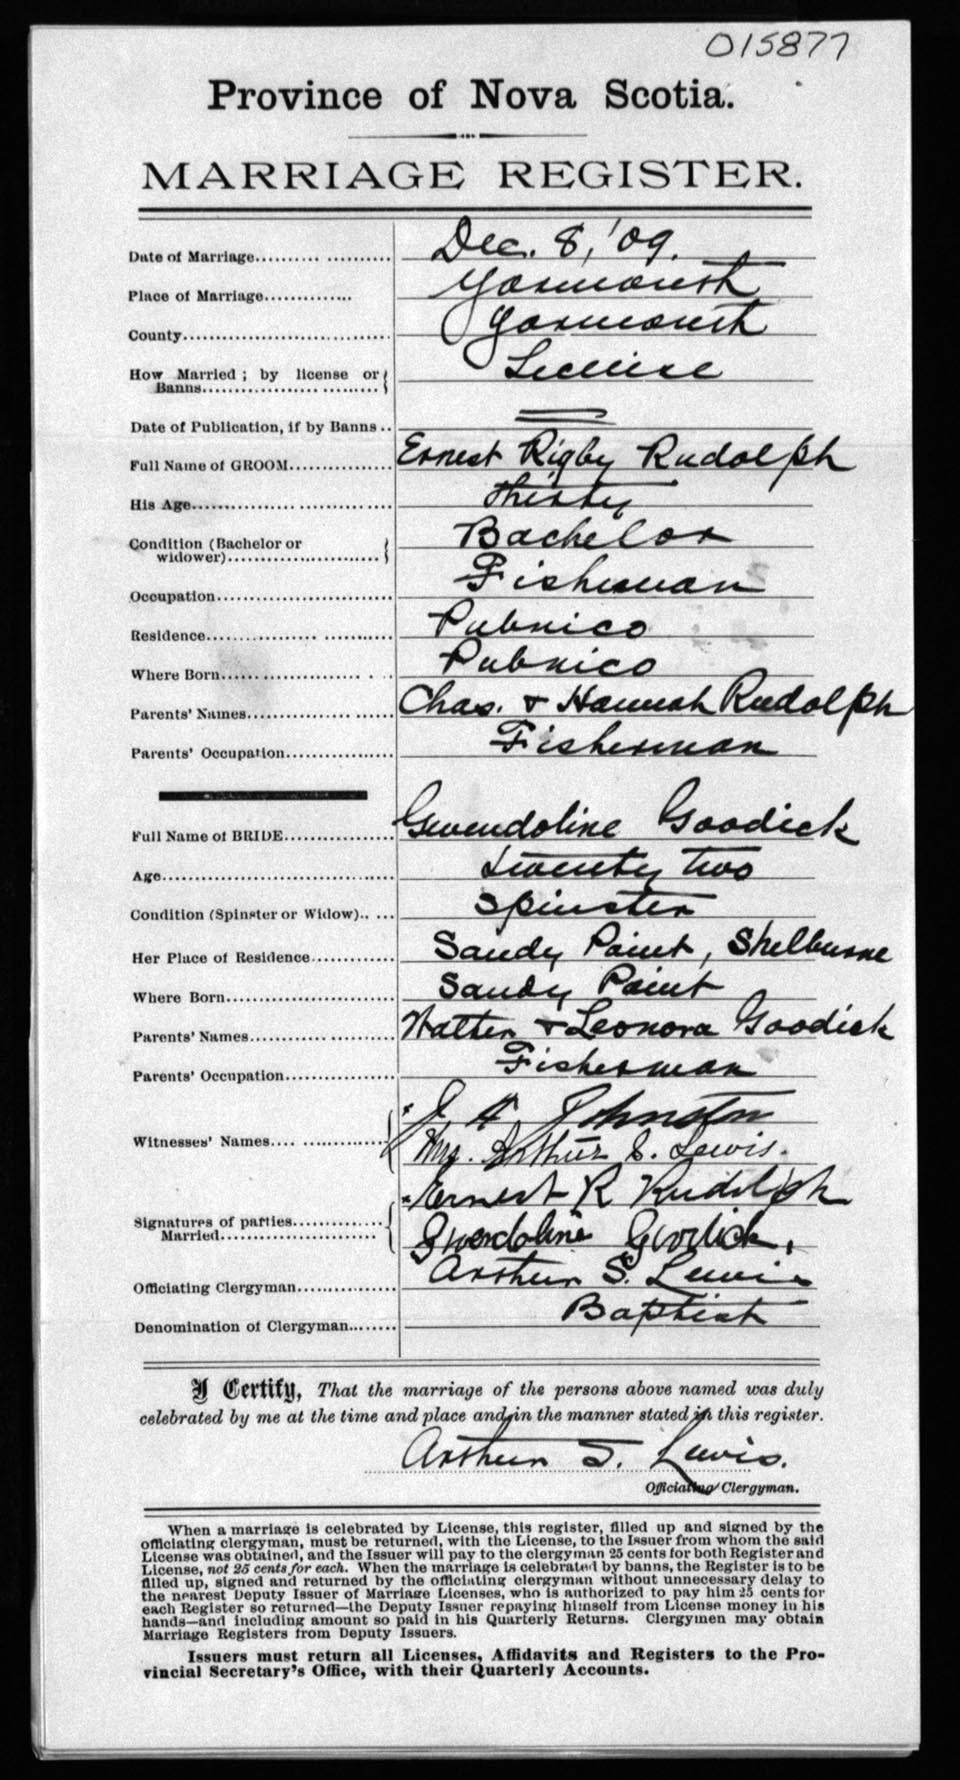 015877
Province of Nova Scotia.
MARRIAGE REGISTER.
Date of Marriage.................... Dec. 8, '09.
Place of Marriage.............. Yarmouth
County................................. Yarmouth
How Married ; by license or Banns................................ License
Date of Publication, if by Banns ..
Full Name of GROOM................ Ernest Rigby Rudolph
His Age................................ Thirty
Condition (Bachelor or widower)............................ Bachelor
Occupation............................ Fisherman
Residence............................ Pubnico
Where Born.......................... Pubnico
Parents' Names...................... Chas. & Hannah Rudolph
Parents' Occupation................ Fisherman
Full Name of BRIDE................ Gwendoline Goodick
Age..................................... twenty two
Condition (Spinster or Widow)..... Spinster
Her Place of Residence............ Sandy Point, Shelburne
Where Born.......................... Sandy Point
Parents' Names...................... Walter & Leonora Goodick
Parents' Occupation................ Fisherman
Witnesses' Names.................. J. H. Johnston
Mrs. Arthur S. Lewis.
Signatures of parties Married....................... Ernest R Rudolph
Gwendoline Goodick.
Officiating Clergyman............... Arthur S. Lewis
Denomination of Clergyman........ Baptist
I Certify, That the marriage of the persons above named was duly
celebrated by me at the time and place and in the manner stated in this register.
Arthur S. Lewis.
Officiating Clergyman.
When a marriage is celebrated by License, this register, filled up and signed by the
officiating clergyman, must be returned, with the License, to the Issuer from whom the said
License was obtained, and the Issuer will pay to the clergyman 25 cents for both Register and
License, not 25 cents for each. When the marriage is celebrated by banns, the Register is to be
filled up, signed and returned by the officiating clergyman without unnecessary delay to
the nearest Deputy Issuer of Marriage Licenses, who is authorized to pay him 25 cents for
each Register so returned—the Deputy Issuer repaying himself from License money in his
hands—and including amount so paid in his Quarterly Returns. Clergymen may obtain
Marriage Registers from Deputy Issuers.
Issuers must return all Licenses, Affidavits and Registers to the Pro-
vincial Secretary's Office, with their Quarterly Accounts.